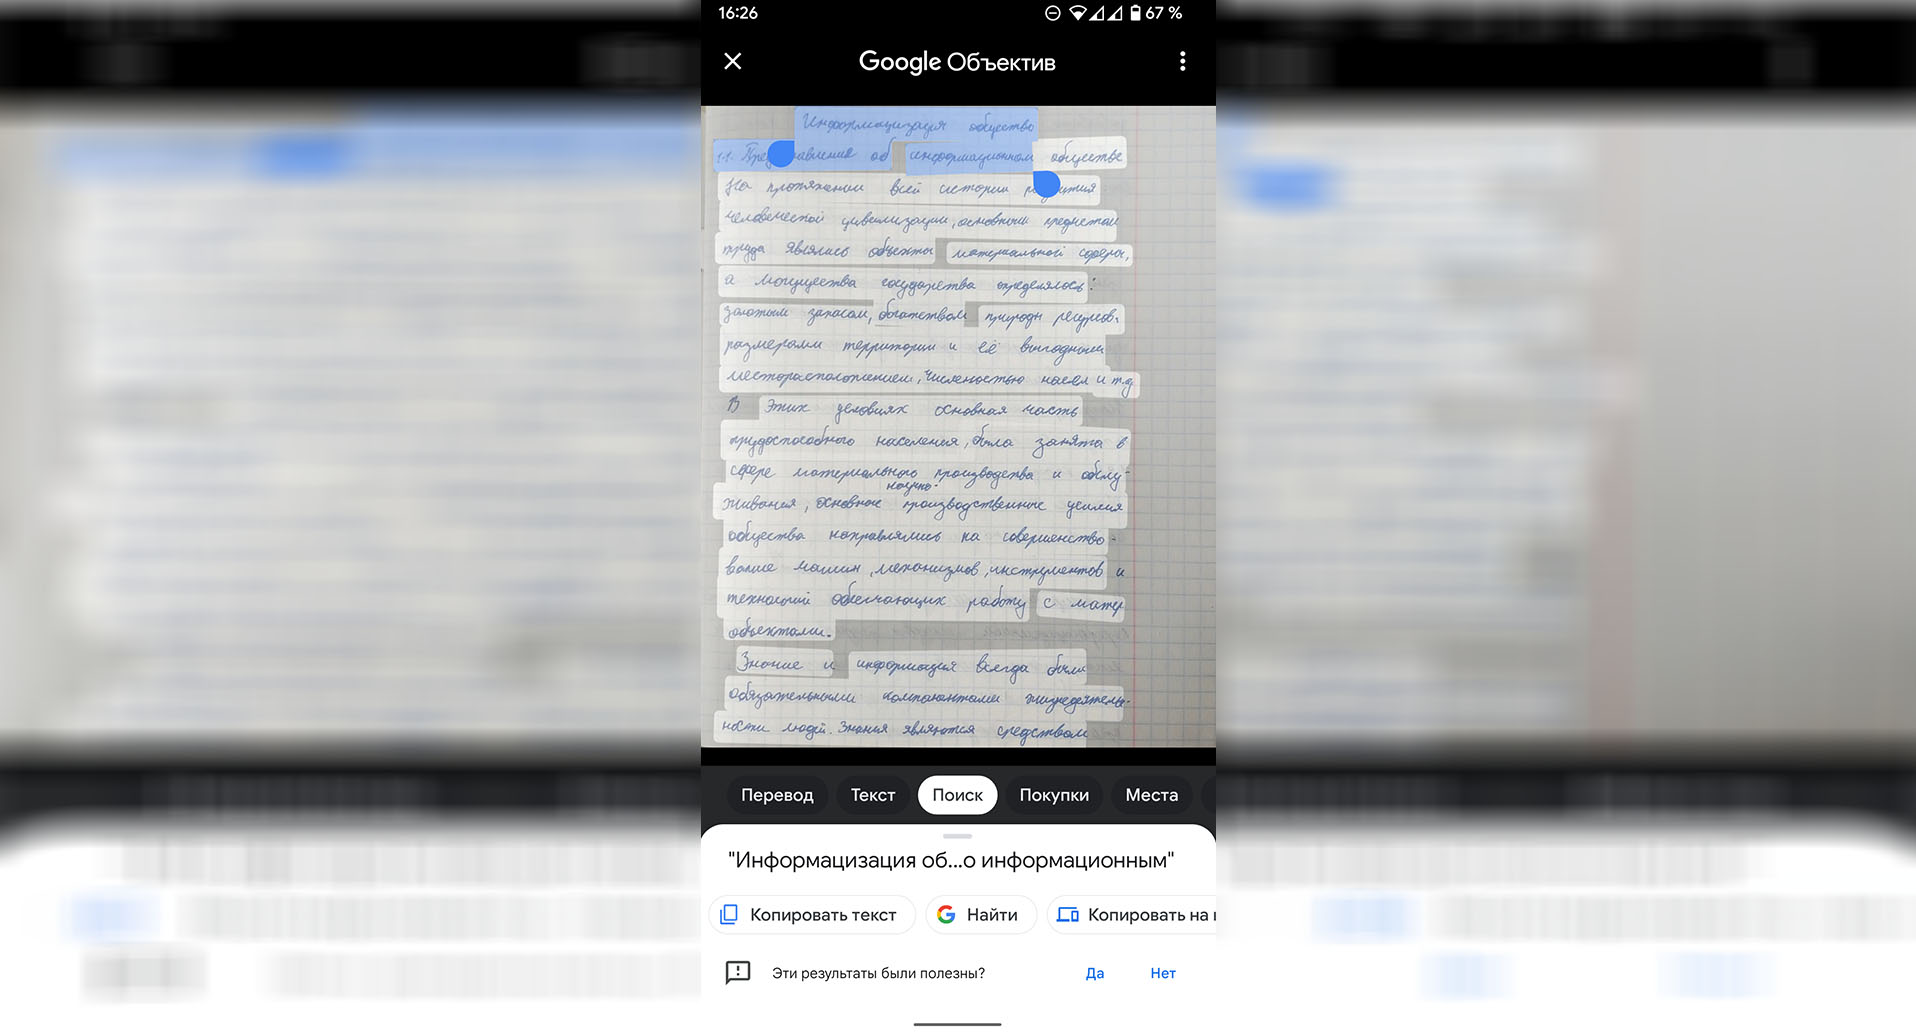 16:26
67 %
Google Объектив
Информацизация общество
1.1. Пред авления об информационном обществе
На протяжении всей истории ра ития
человеческой цивилизации, основным предметом
труда являлись объекты материальной сферы,
а могущества государства определялось:
золотым запасом, богатством природн ресурсов.
размерами территории и её выгодным
месторасположением, численостью насел и т.д
В этих условиях основная часть
трудоспособного населения, была занята в
сфере материального производства и обслу-
научно-
живания, основное производственные усилия
общества направлялись на совершенство-
вание машин, механизмов, инструментов и
технологий обеспечающих работу с матер
объектами.
Знание и информация всегда были
обязательными компонентами жизнедеятель-
ности людей. Знания являются средством
Перевод
Текст
Поиск
Покупки
Места
"Информацизация об...о информационным"
Копировать текст
Найти
Копировать на
Эти результаты были полезны?
Да
Нет